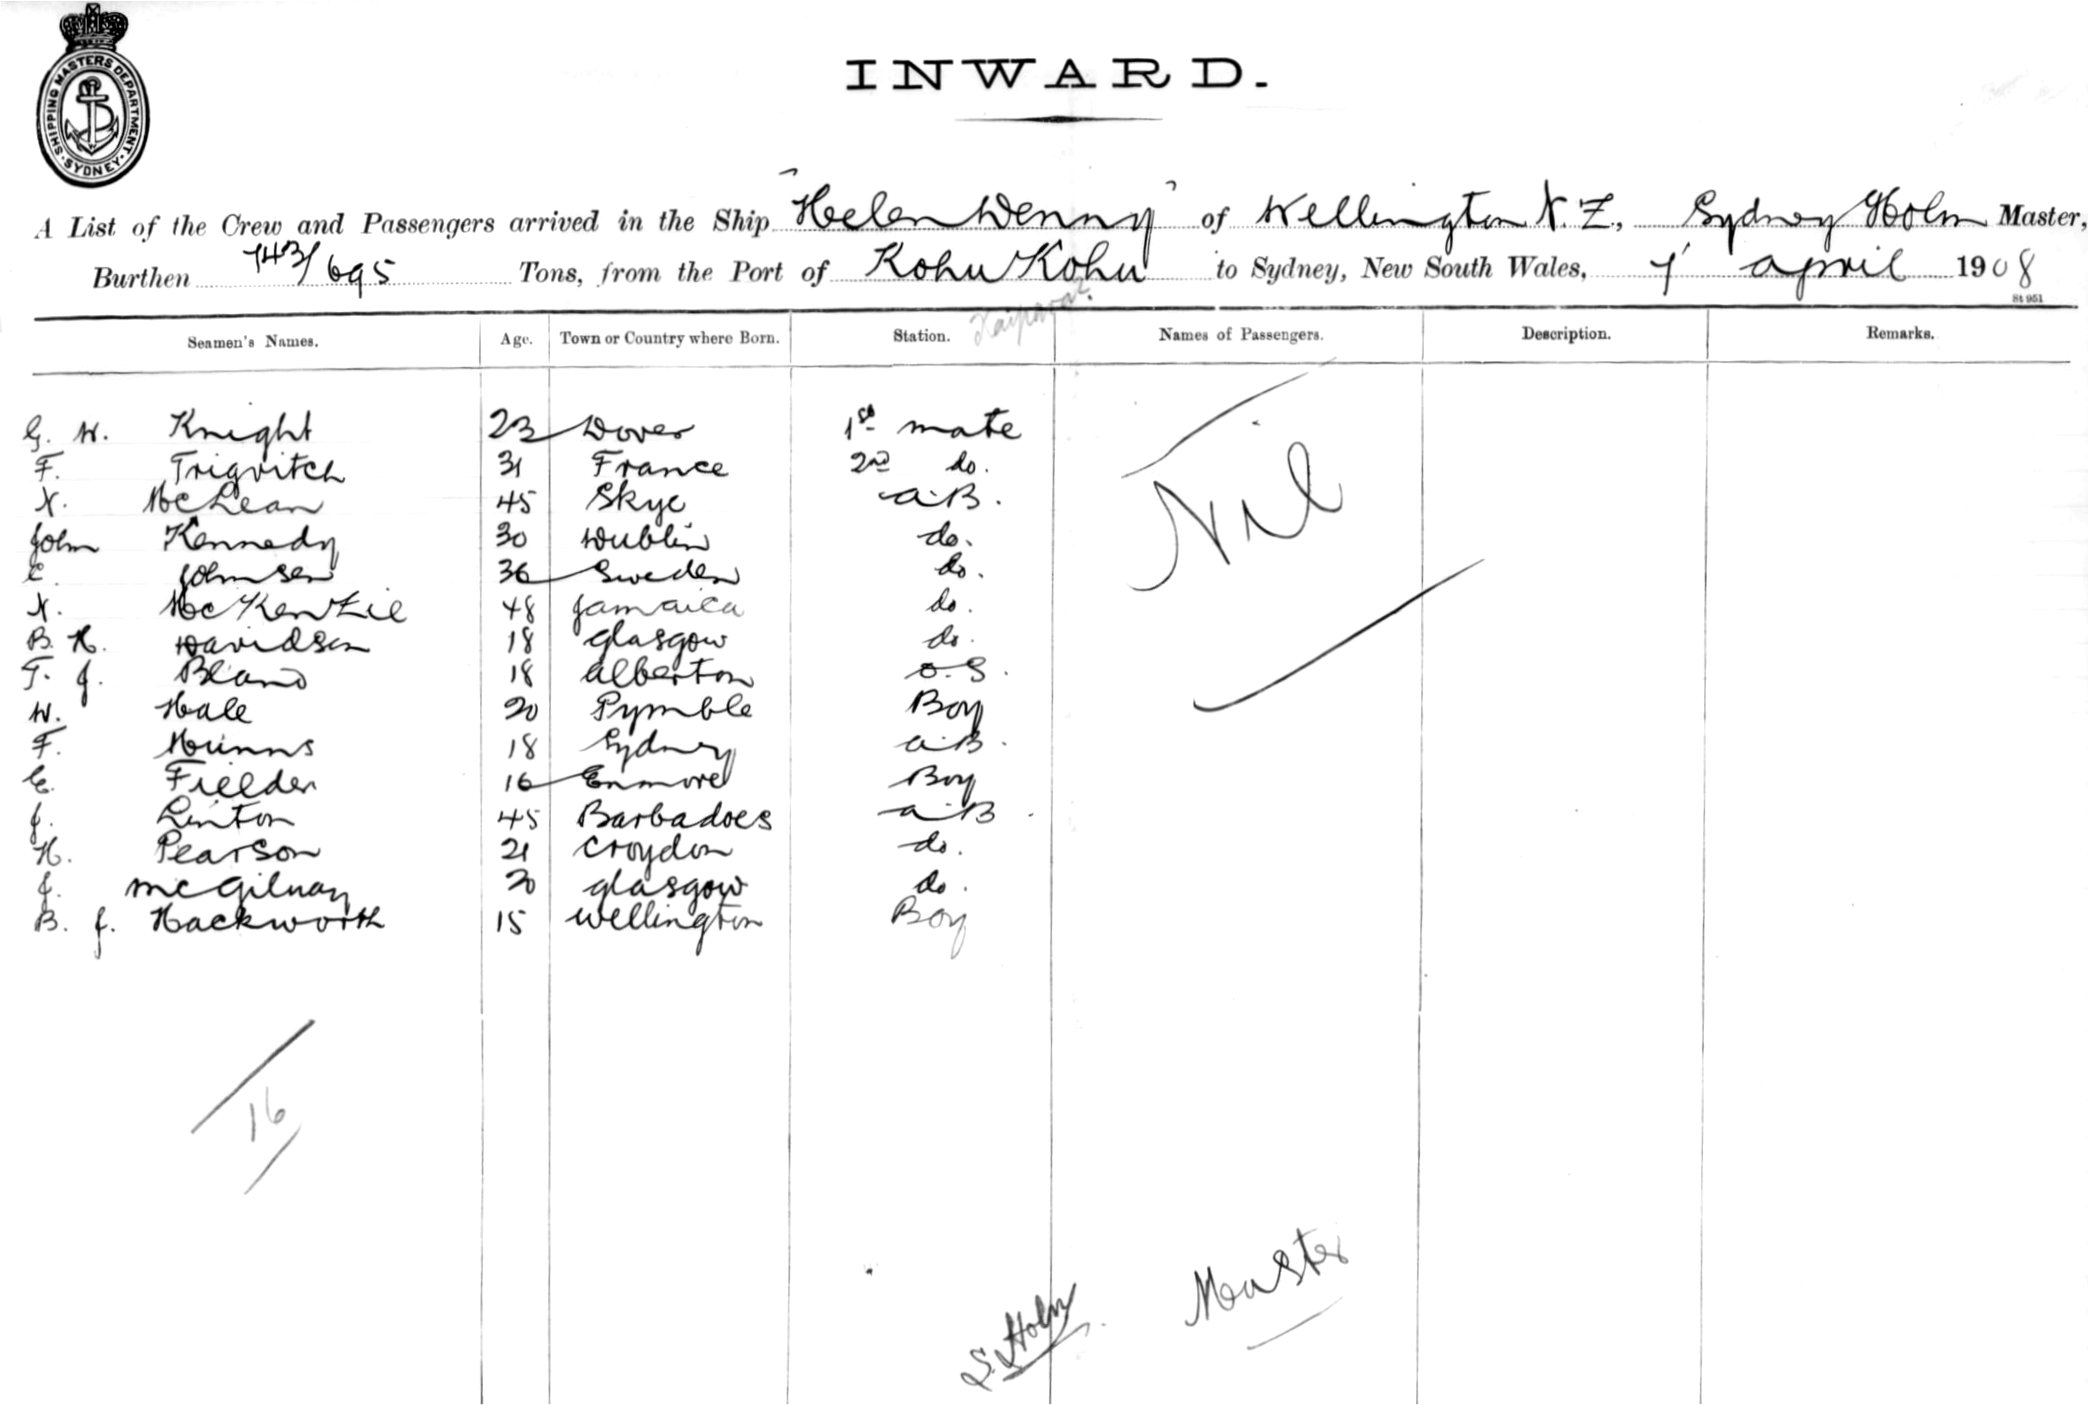 SHIPPING MASTERS DEPARTMENT
· SYDNEY ·
INWARD.
A List of the Crew and Passengers arrived in the Ship "Helen Denny" of Wellington N.Z., Sydney Holm Master,
Burthen 743/695 Tons, from the Port of Kohu Kohu to Sydney, New South Wales, 7 april 1908
St 951
Kaipara?
Seamen's Names. Age. Town or Country where Born. Station. Names of Passengers. Description. Remarks.
G. W. Knight 23 Dover 1st mate
F. Trigvitch 31 France 2nd do.
N. McLean 45 Skye a.B.
John Kennedy 30 Dublin do.
C. Johnsen 36 Sweden do.
N. McKenzie 48 Jamaica do.
B. H. Davidson 18 Glasgow do.
T. J. Bland 18 Alberton O.S.
W. Hale 20 Pymble Boy
F. Munns 18 Sydney a.B.
E. Fielder 16 Enmore Boy
J. Linton 45 Barbadoes a.B.
H. Pearson 21 Croydon do.
J. McGilvay 20 Glasgow do.
B. J. Hackworth 15 Wellington Boy
Nil
16
S. Holm Master